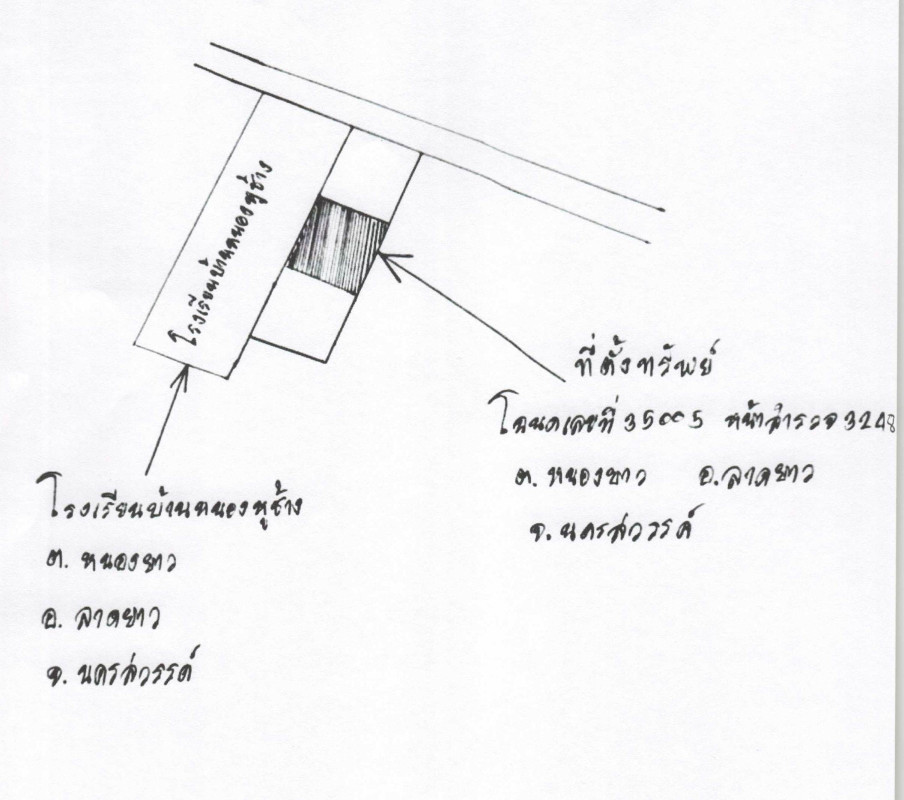 โรงเรียนบ้านหนองหูช้าง
ที่ตั้งทรัพย์
โฉนดเลขที่ 35005 หน้าสำรวจ 3248
ต. หนองยาว อ.ลาดยาว
จ. นครสวรรค์
โรงเรียนบ้านหนองหูช้าง
ต. หนองยาว
อ. ลาดยาว
จ. นครสวรรค์